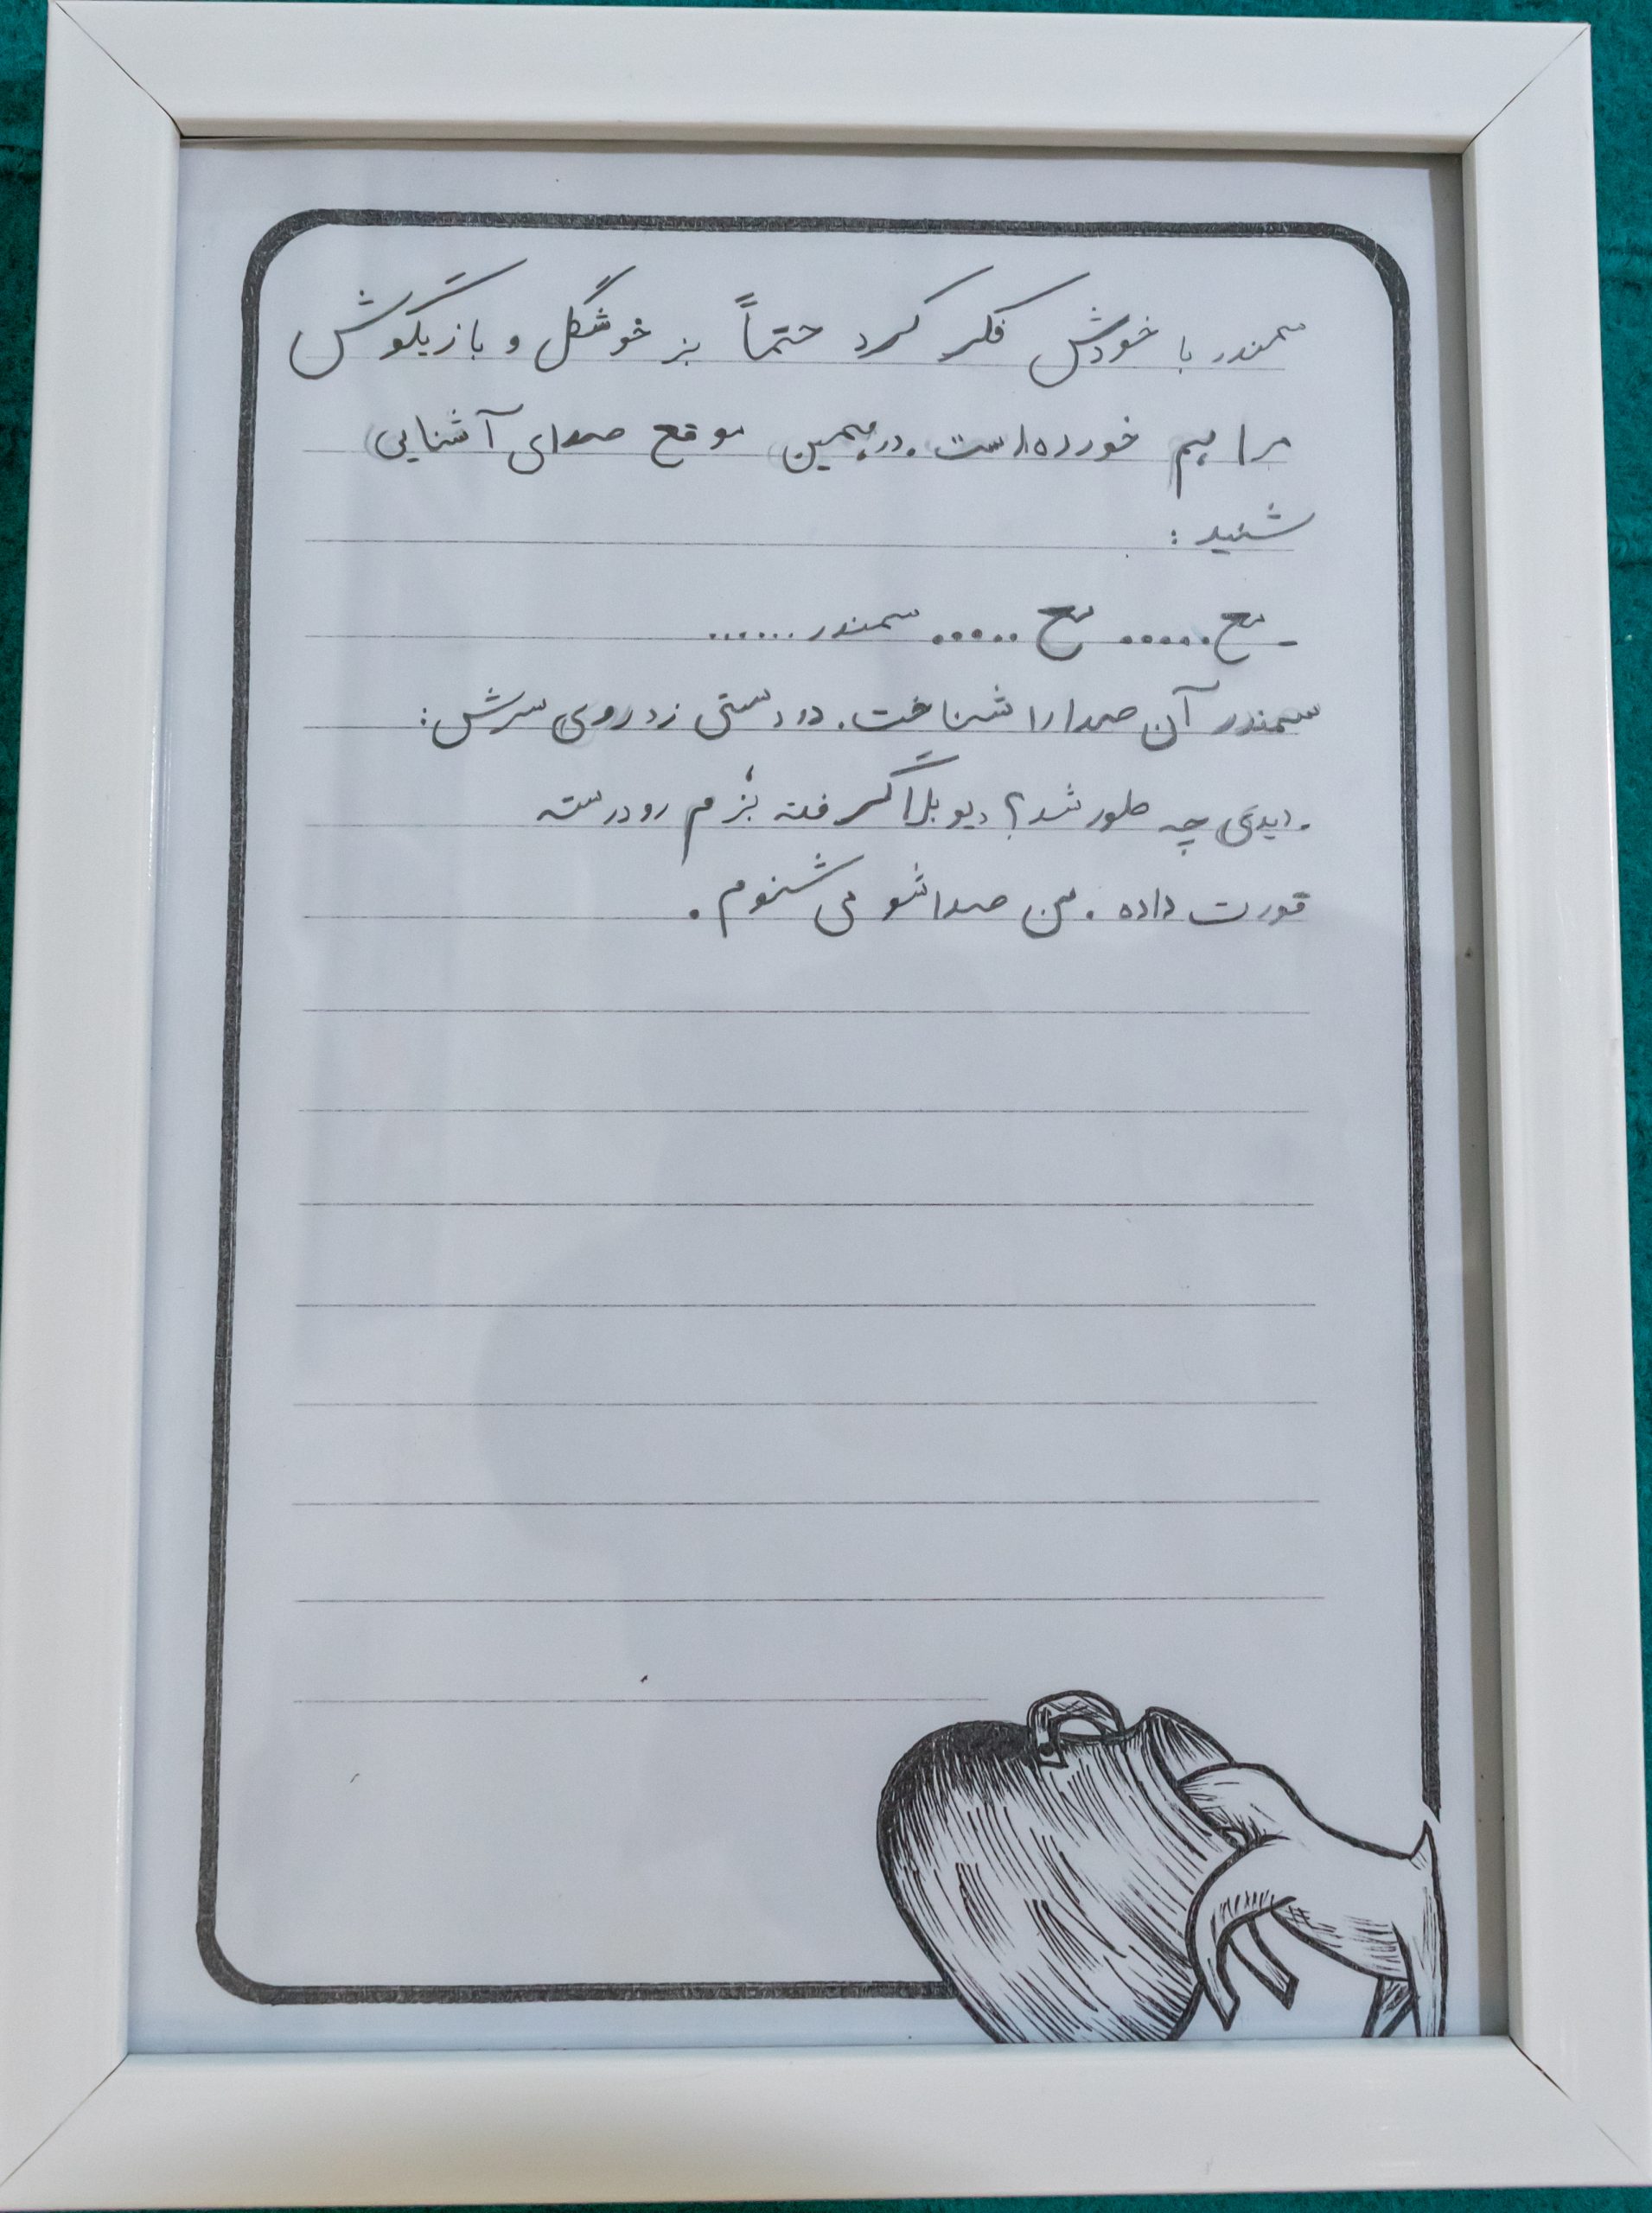 سمندر با خودش فکر کرد حتماً بز خوشگل و بازیگوش
مرا هم خورده است. در همین موقع صدای آشنایی
شنید :
- مع..... مع ..... سمندر ......
سمندر آن صدا را شناخت. دو دستی زد روی سرش:
- دیدی چه طور شد؟ دیو بلا گرفته بُزم رو درسته
قورت داده . من صداشو می شنوم .